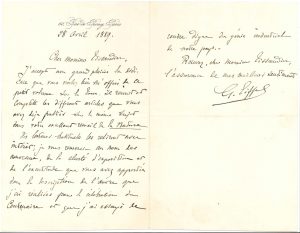 28 Avril 1889.
Cher Monsieur Tissandier,
J'accepte avec grand plaisir la dédi-
cace que vous voulez bien m'offrir de ce
petit volume sur la Tour. Il réunit et
complète les différents articles que vous
avez déjà publiés sur le même sujet
dans votre excellent recueil de la Nature.
Vos lecteurs habituels les reliront avec
intérêt; je vous remercie en mon nom
de la clarté d'exposition et
de l'exactitude que vous avez apportées
dans la description de l'œuvre que
j'ai réalisée pour la célébration du
Centenaire et que j'ai essayé de
rendre digne du génie industriel
de notre pays.
Recevez, cher Monsieur Tissandier,
l'assurance de mes meilleurs sentiments
G. Eiffel